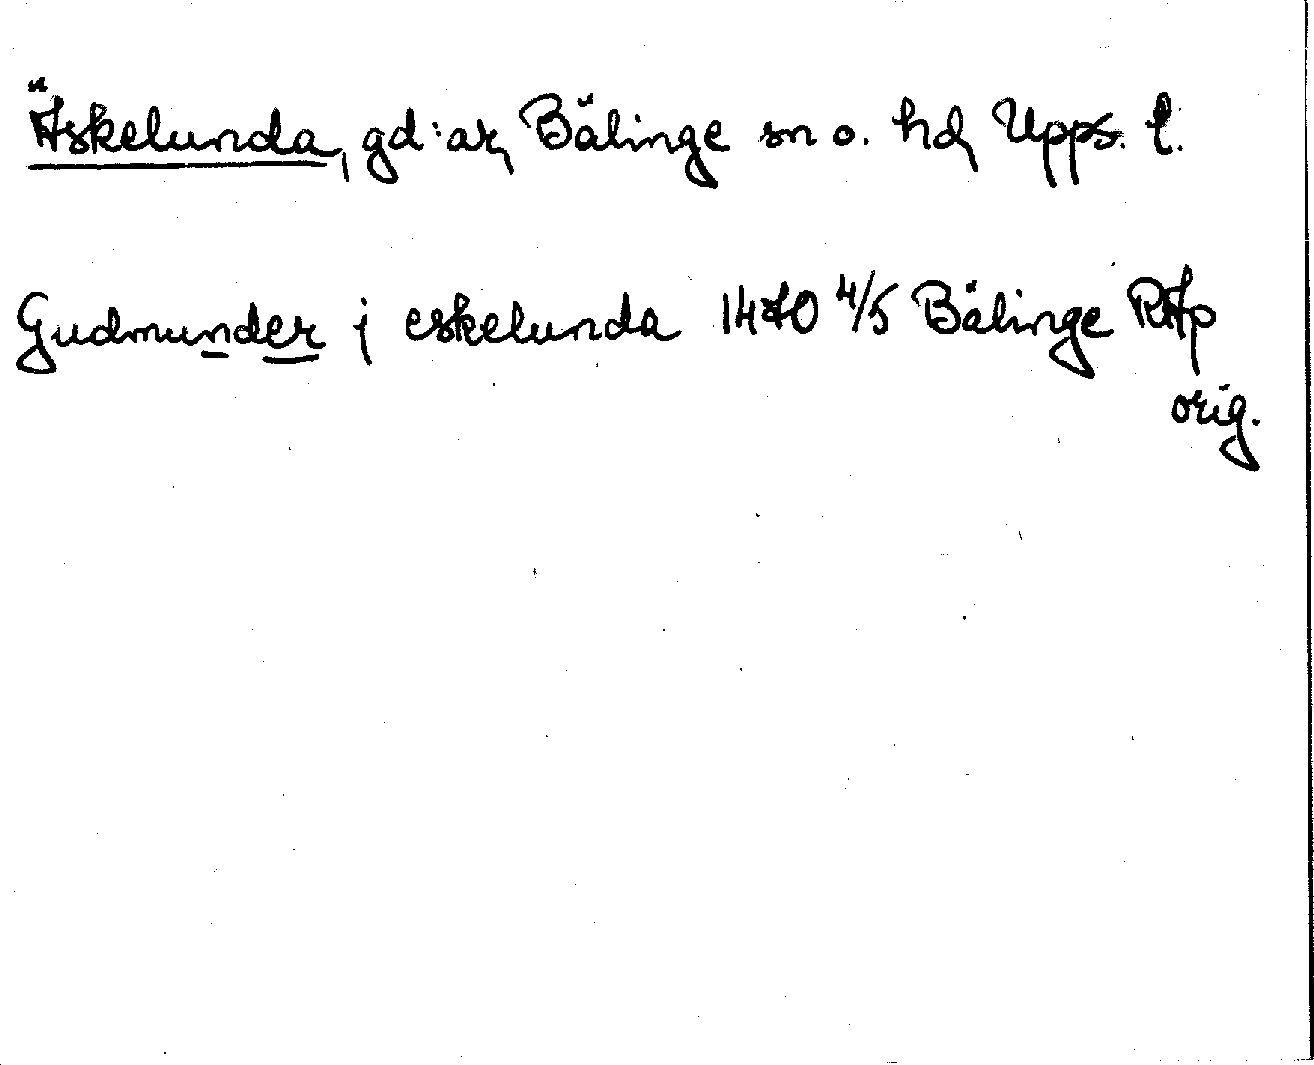 Äskelunda, gd:ar, Bälinge sn o. hd, Upps. l.
Gudmunder j eskelunda 1470 4/5 Bälinge RAp
orig.